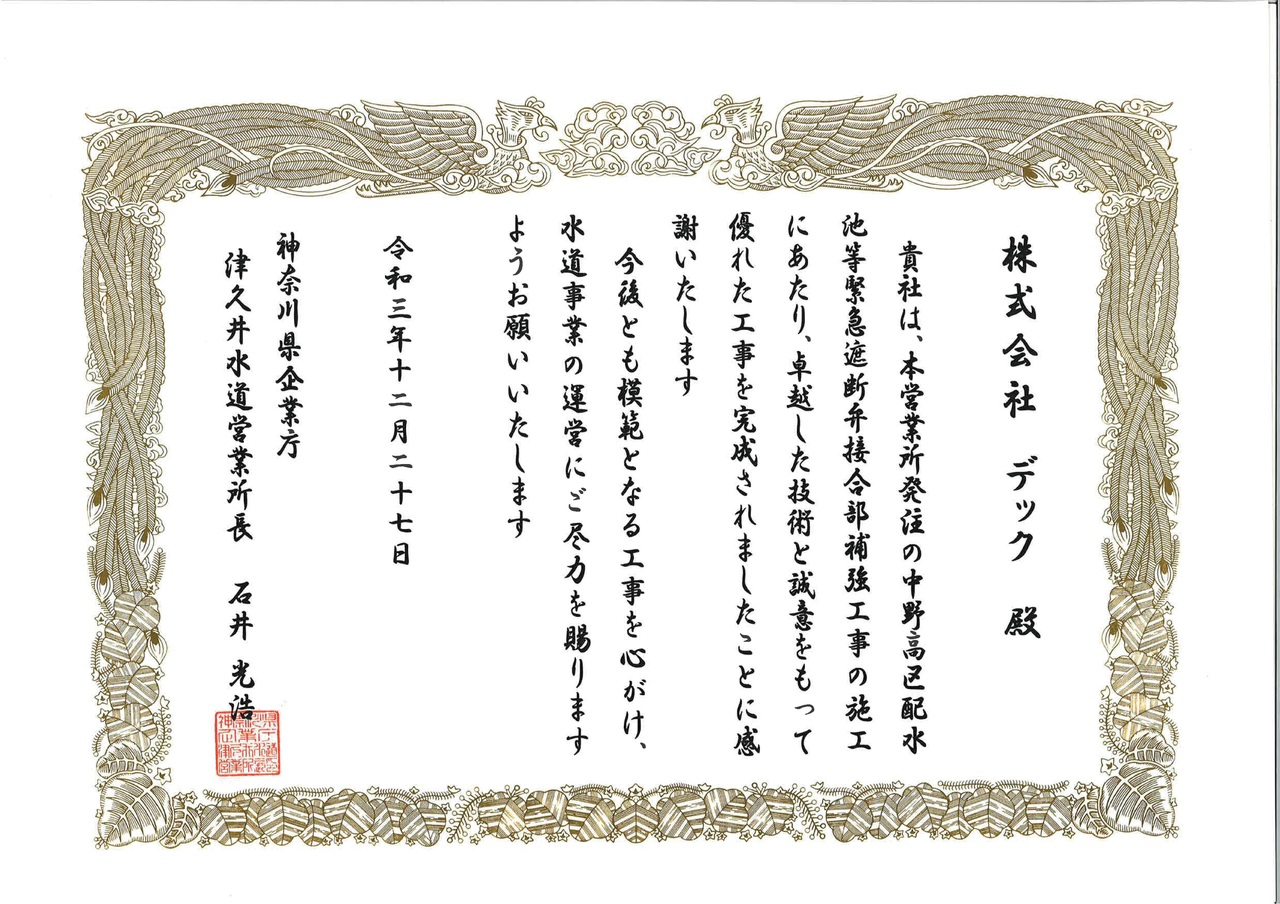 株式会社 デック 殿
貴社は、本営業所発注の中野高区配水
池等緊急遮断弁接合部補強工事の施工
にあたり、卓越した技術と誠意をもって
優れた工事を完成されましたことに感
謝いたします
今後とも模範となる工事を心がけ、
水道事業の運営にご尽力を賜ります
ようお願いいたします
令和三年十二月二十七日
神奈川県企業庁
津久井水道営業所長 石井 光浩